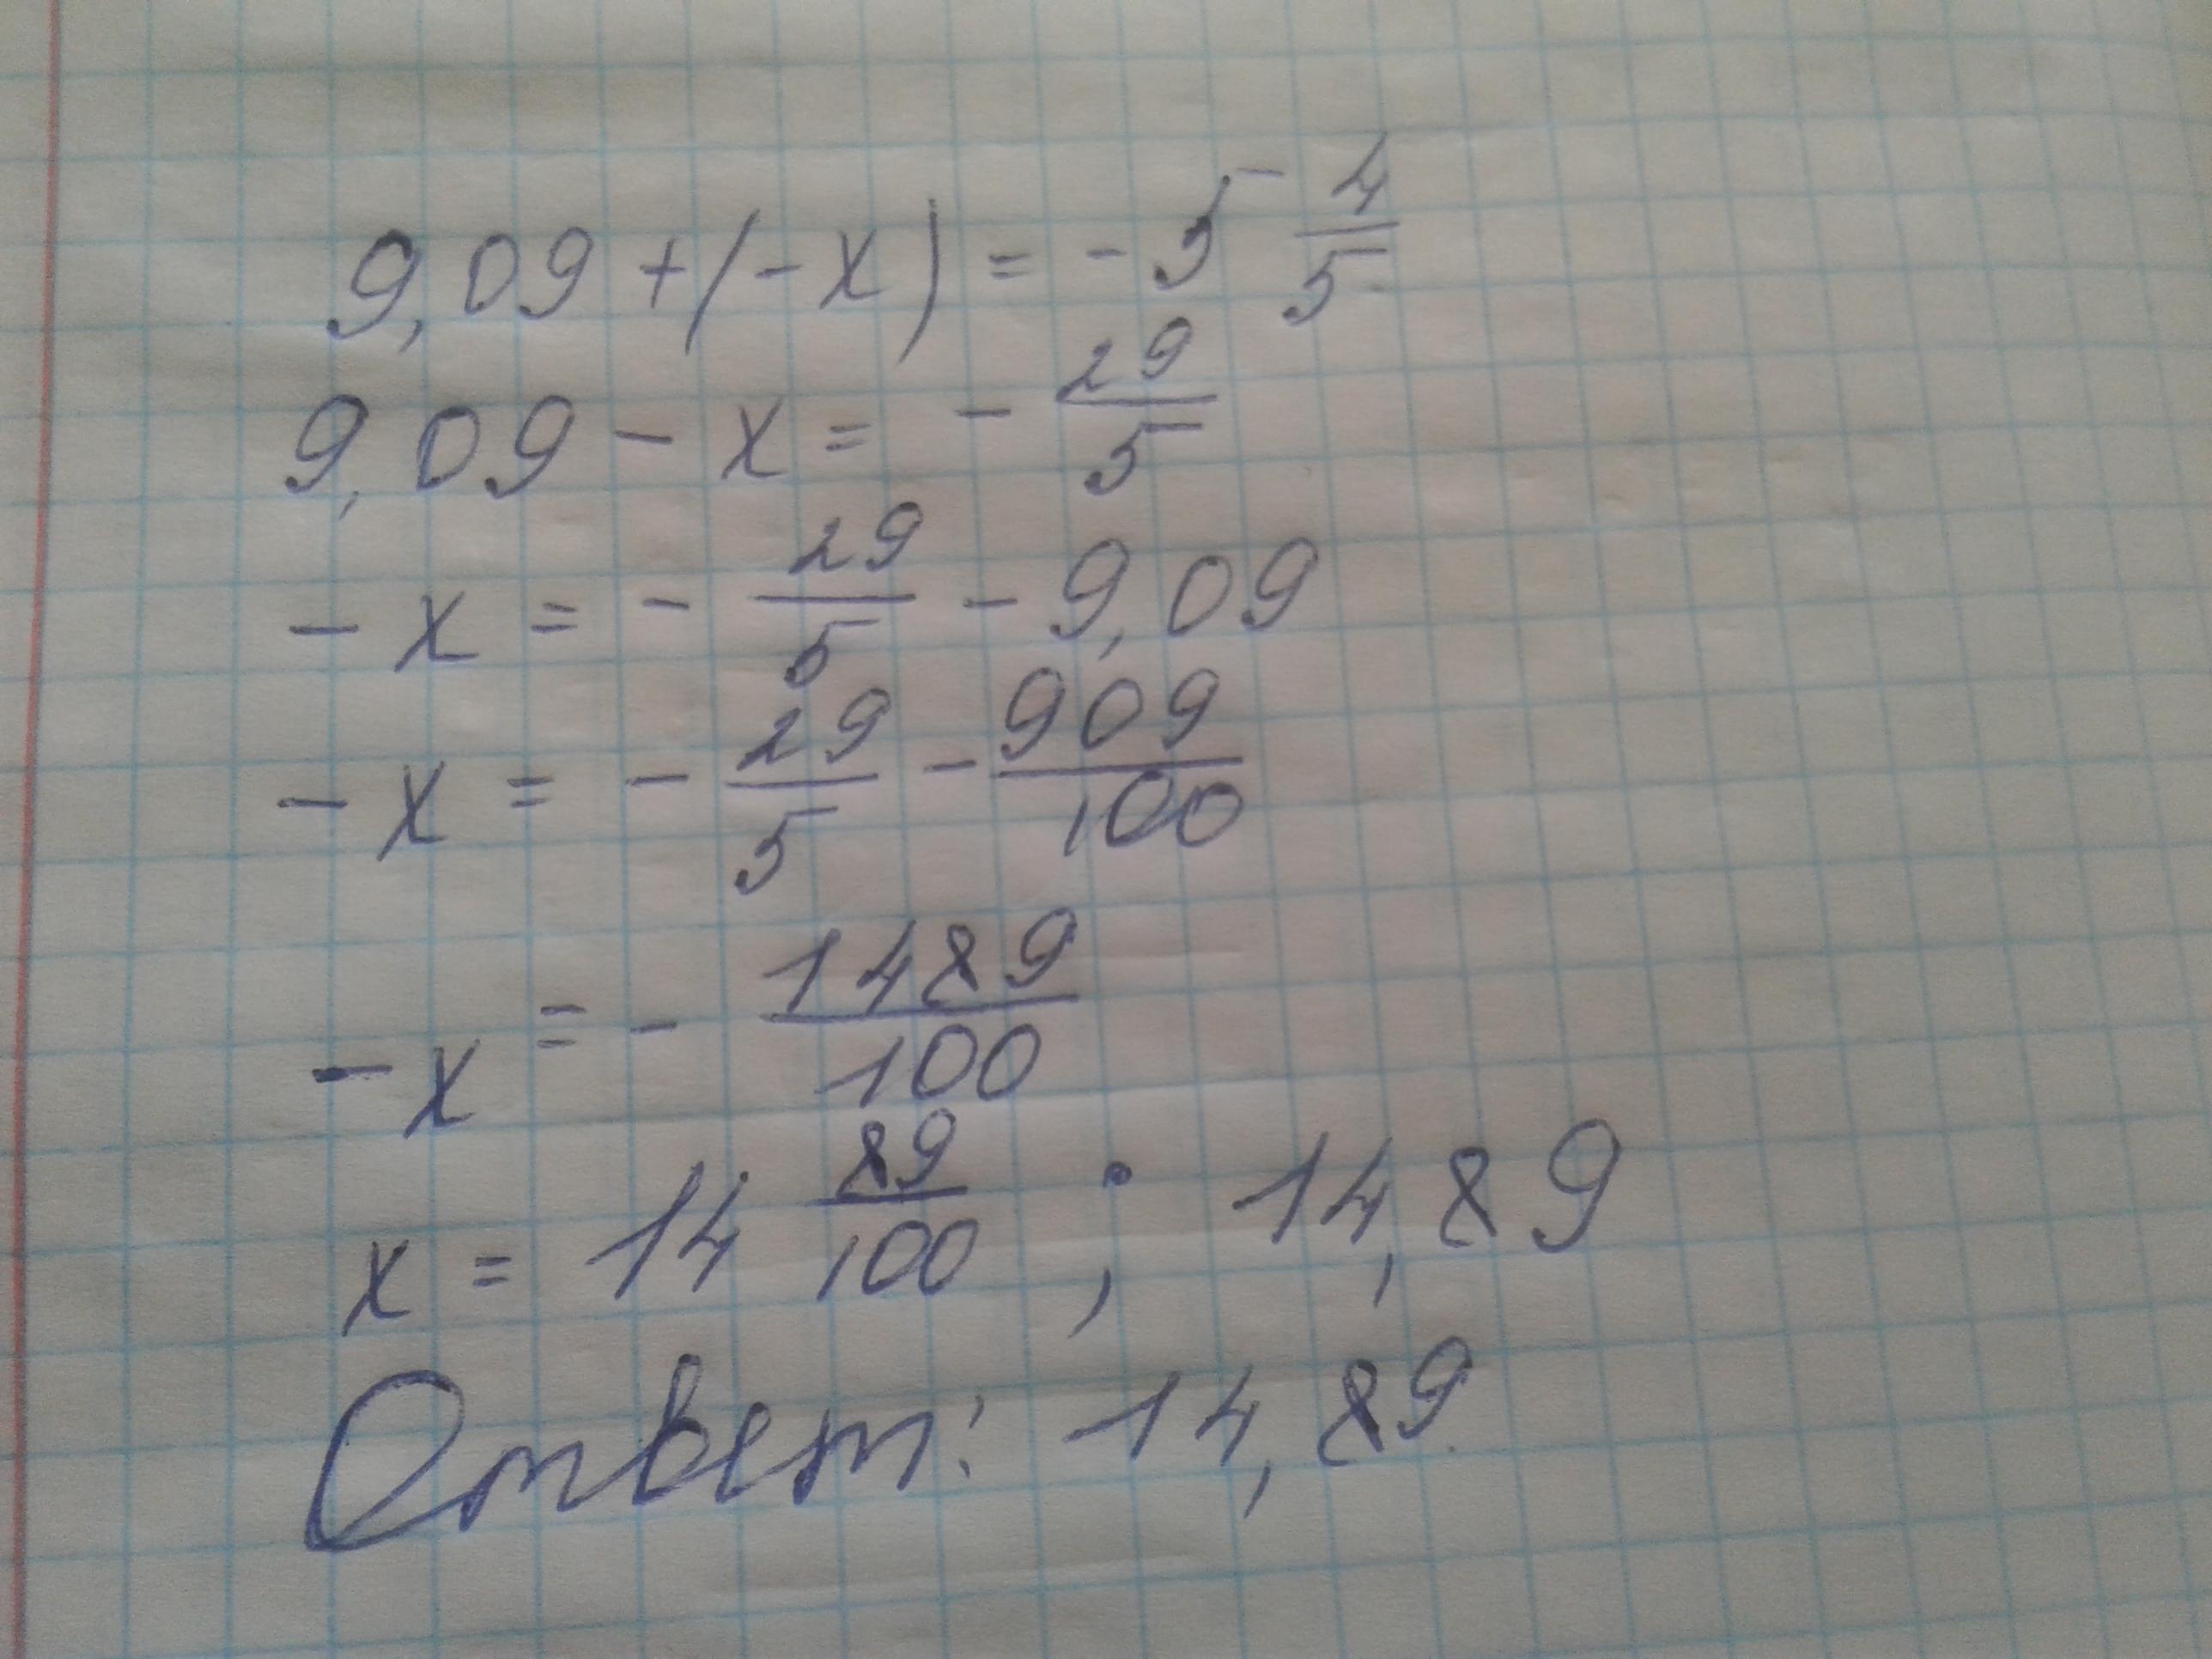 9,09 + (-x) = -5 4/5
9,09 - x = - 29/5
-x = - 29/5 - 9,09
-x = - 29/5 - 909/100
-x = - 1489/100
x = 14 89/100 ; 14,89
Ответ: 14,89